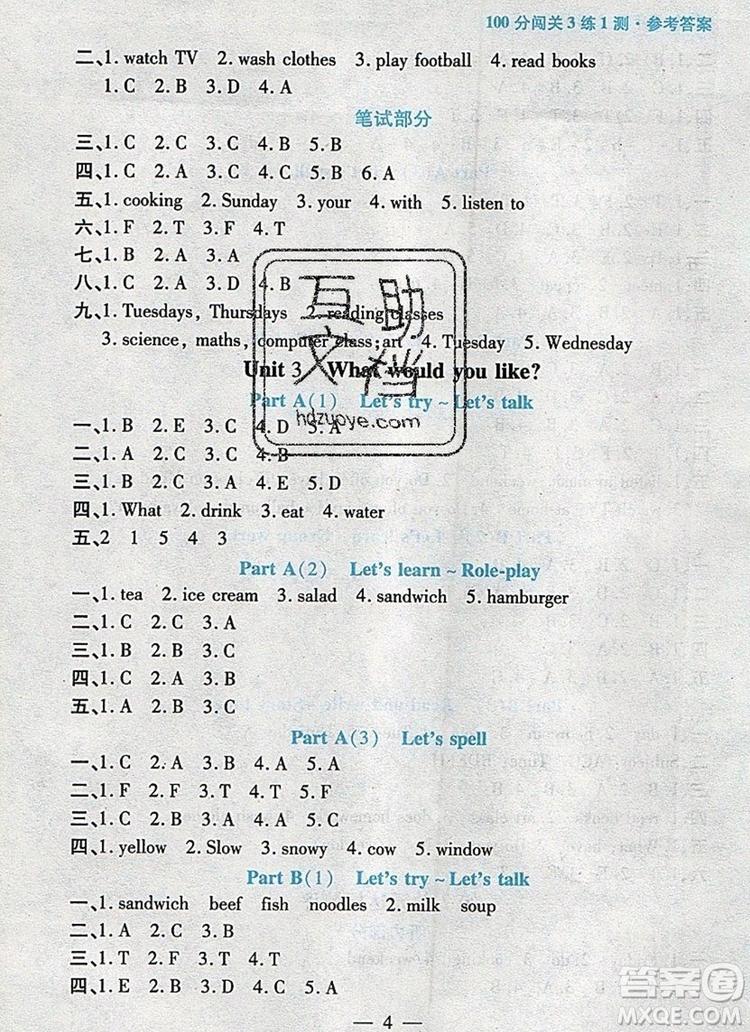 100分闯关3练1测·参考答案
二、1. watch TV 2. wash clothes 3. play football 4. read books
1. C 2. B 3. D 4. A
笔试部分
三、1. C 2. C 3. C 4. B 5. B
四、1. C 2. A 3. C 4. B 5. B 6. A
五、1. cooking 2. Sunday 3. your 4. with 5. listen to
六、1. F 2. T 3. F 4. T
七、1. B 2. A 3. A
八、1. C 2. A 3. D 4. B
九、1. Tuesdays, Thursdays 2. reading classes
3. science, maths, computer class; art 4. Tuesday 5. Wednesday
Unit 3 What would you like?
Part A(1) Let's try ~ Let's talk
一、1. B 2. E 3. C 4. D 5. A
二、1. A 2. C 3. C 4. B
三、1. C 2. B 3. A 4. E 5. D
四、1. What 2. drink 3. eat 4. water
五、2 1 5 4 3
Part A(2) Let's learn ~ Role-play
一、1. tea 2. ice cream 3. salad 4. sandwich 5. hamburger
二、1. C 2. C 3. A
三、1. B 2. A 3. B
四、1. C 2. B 3. A
五、1. A 2. B 3. C
Part A(3) Let's spell
一、1. C 2. A 3. B 4. A 5. A
二、1. F 2. F 3. T 4. T 5. F
三、1. B 2. C 3. A 4. A 5. C
四、1. yellow 2. Slow 3. snowy 4. cow 5. window
Part B(1) Let's try ~ Let's talk
一、1. sandwich beef fish noodles 2. milk soup
二、1. A 2. C 3. B
三、1. T 2. F 3. T 4. T
四、1. E 2. B 3. D 4. A 5. C
— 4 —
互助
文档
hdzuoye.com
答案圈
MXQE.COM